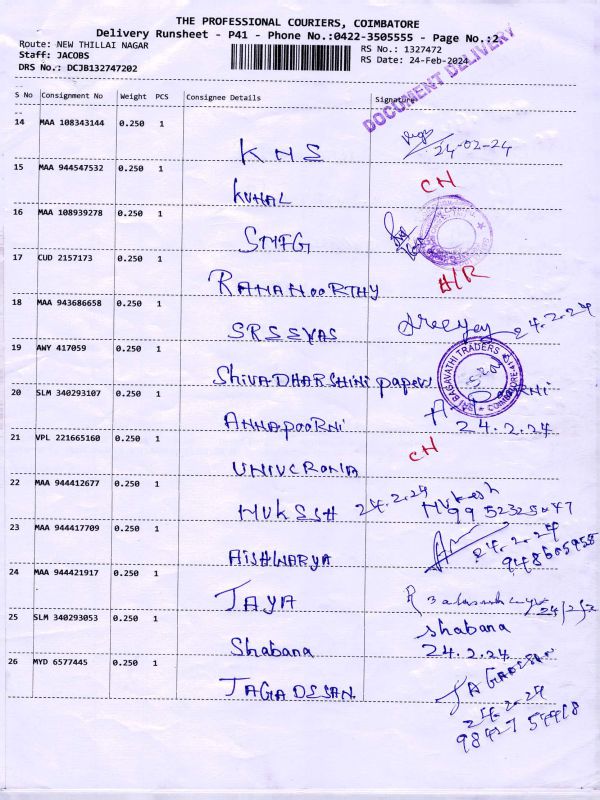 THE PROFESSIONAL COURIERS, COIMBATORE
Delivery Runsheet - P41 - Phone No.:0422-3505555 - Page No.:2
Route: NEW THILLAI NAGAR RS No.: 1327472
Staff: JACOBS RS Date: 24-Feb-2024
DRS No.: DCJB132747202
DOCUMENT DELIVERY
S No Consignment No Weight PCS Consignee Details Signature
14 MAA 108343144 0.250 1 KNS 24-02-24
15 MAA 944547532 0.250 1 KUNAL CH
16 MAA 108939278 0.250 1 SMFG
17 CUD 2157173 0.250 1 RAMAMOORTHY H/R
18 MAA 943686658 0.250 1 SRSSVAS 24.2.24
19 AWY 417059 0.250 1 SHIVADHARSHINI papers
SRI BAGAVATHI TRADERS COIMBATORE
20 SLM 340293107 0.250 1 ANNAPOORNI 24.2.24
21 VPL 221665160 0.250 1 CH
22 MAA 944412677 0.250 1 MUKSSH 24.2.24 Mukesh
23 MAA 944417709 0.250 1 AISHWARYA 24.2.24
24 MAA 944421917 0.250 1 JAYA
25 SLM 340293053 0.250 1 Shabana shabana 24.2.24
26 MYD 6577445 0.250 1 JAGADSSAN JAGADESAN
24.2.24